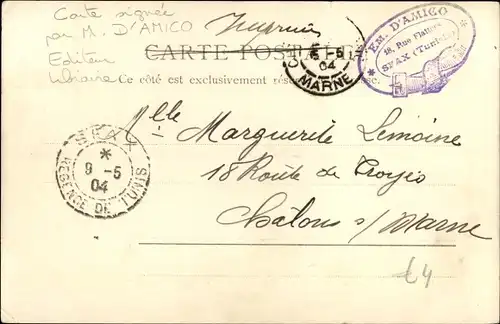 Carte signée
par M. D'AMICO
Editeur
libraire
Imprimé
CARTE POSTALE
Ce côté est exclusivement
5
04
MARNE
EM. D'AMICO
18, Rue
SFAX (Tunisie)
SFAX
9 - 5
04
REGENCE DE TUNIS
Mlle Marguerite Lemoine
18 Route de Troyes
Châlons s/ Marne
£4